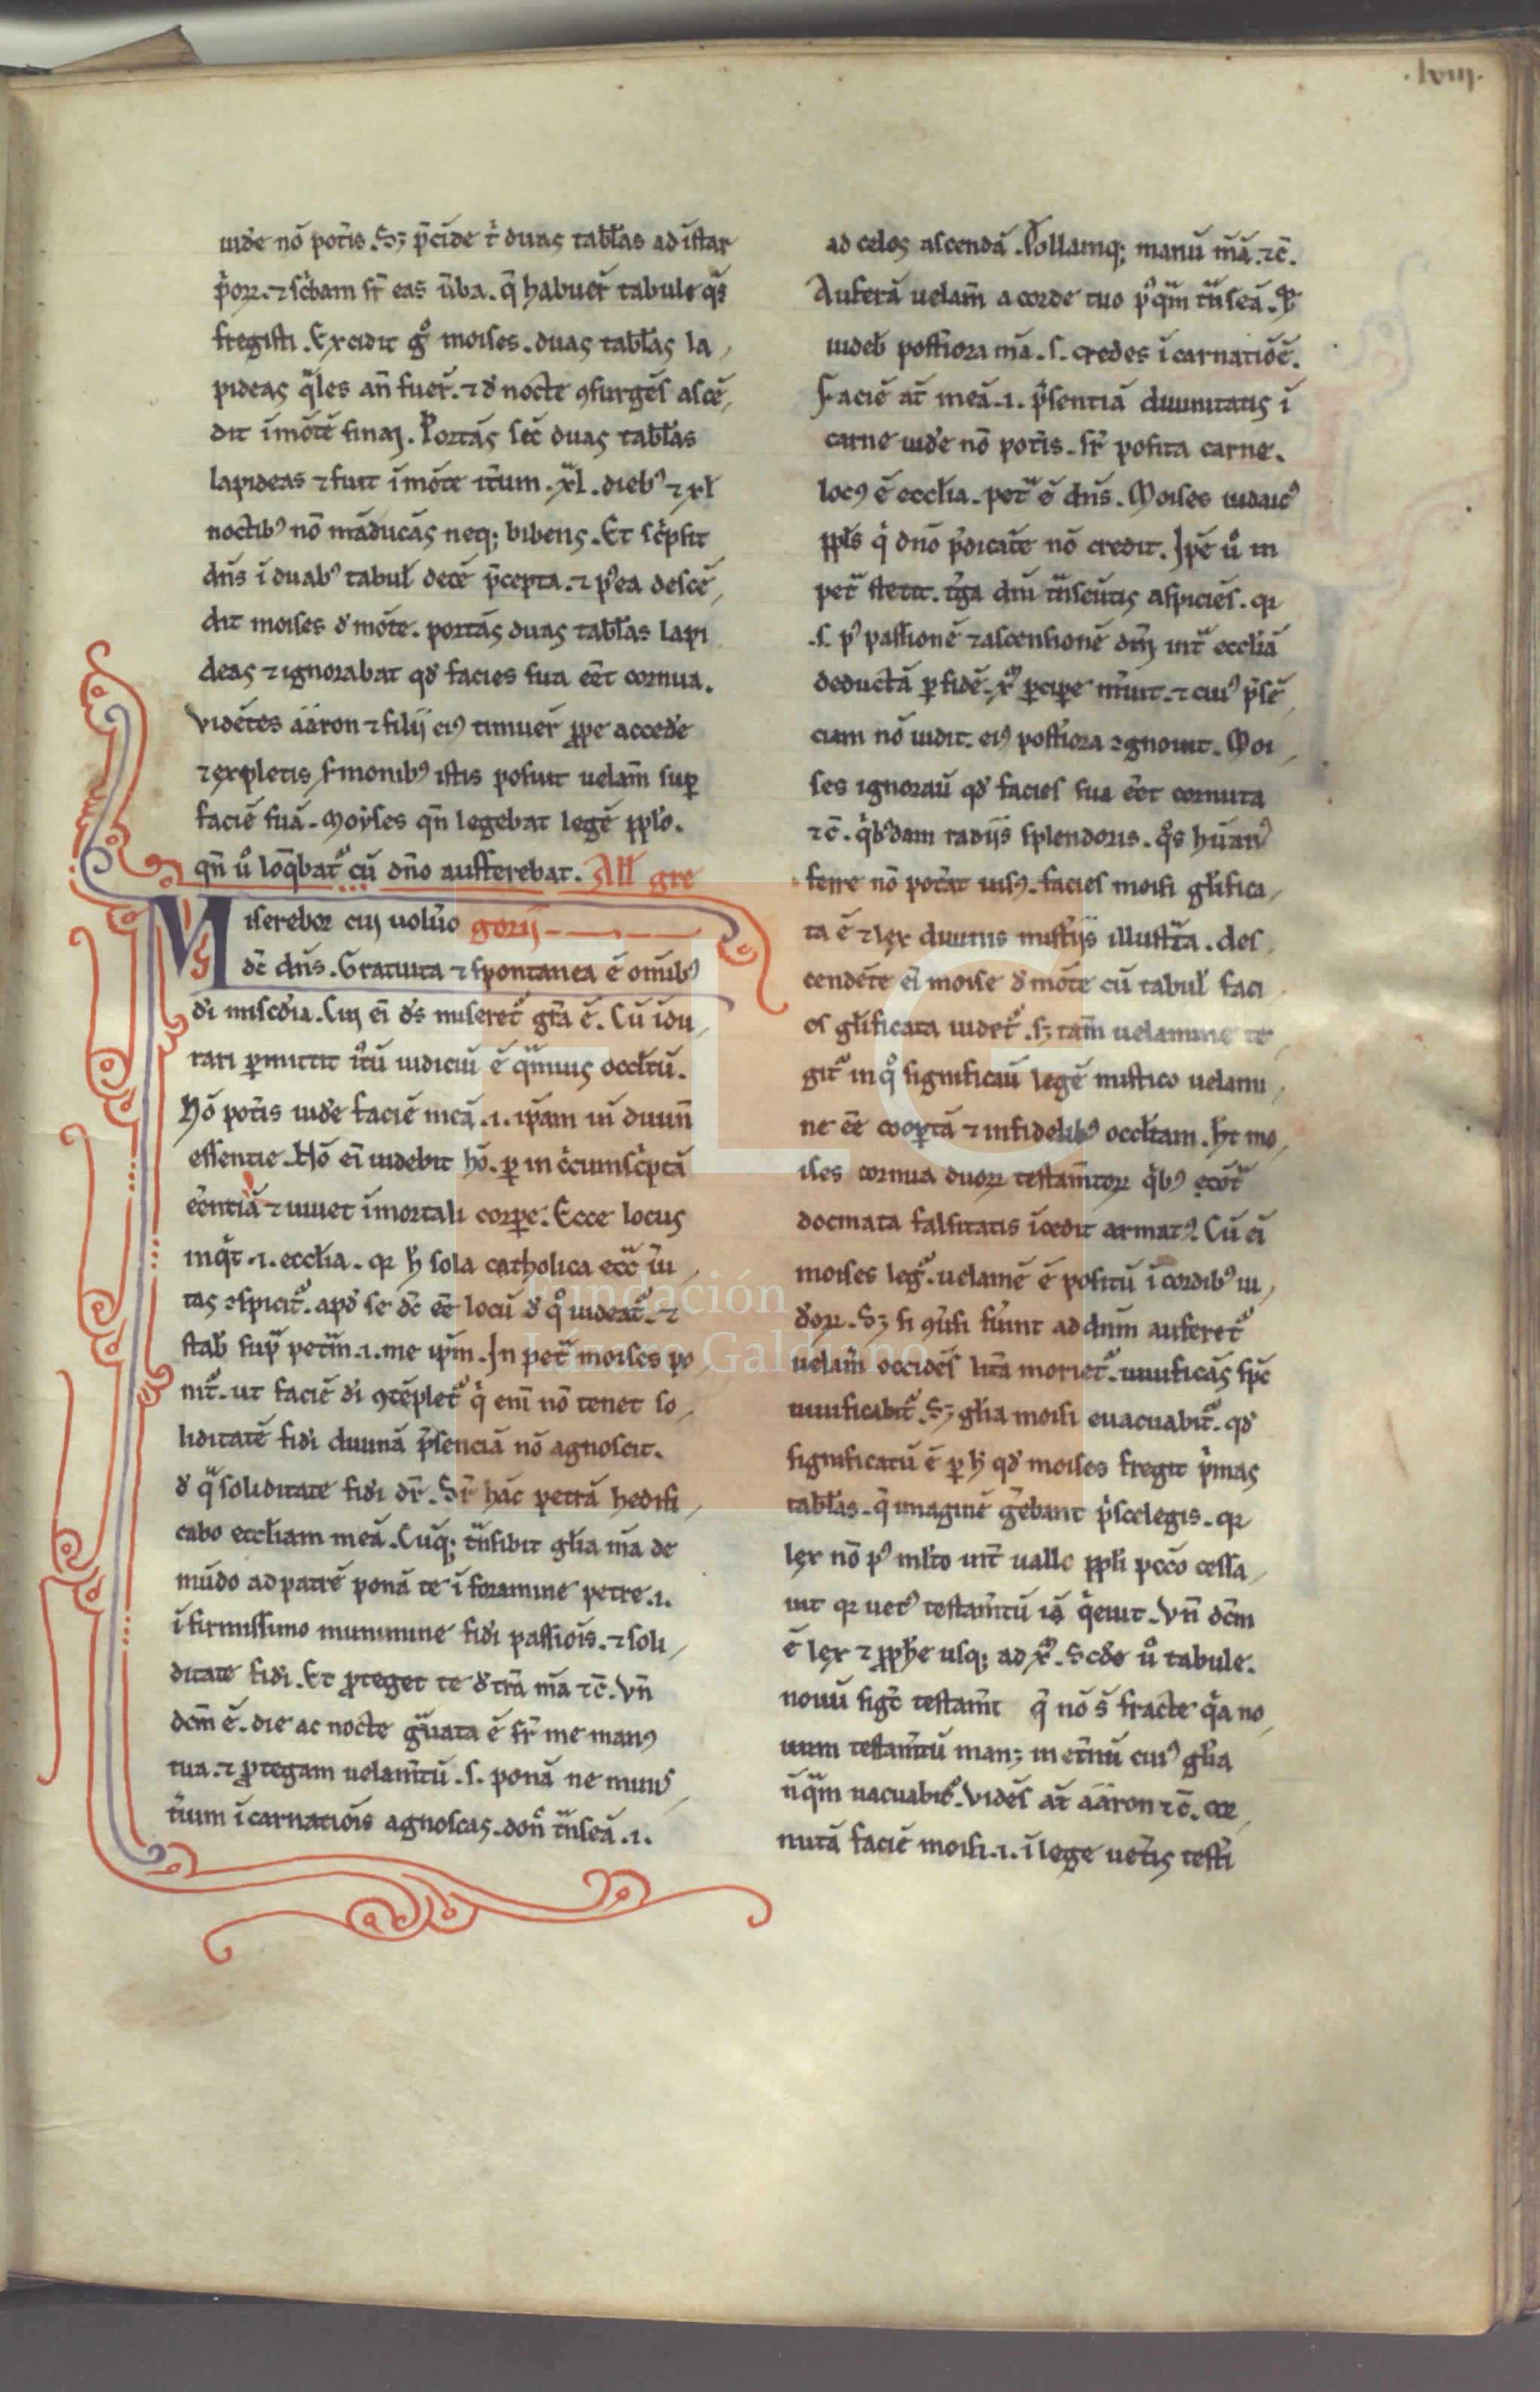 .lviij.
uid'e nō pot'is. Sʒ p̄cide t' duas tab'las ad īstar
p'oꝝ. ⁊ sc'bam sr̄ eas ūba. q̄ habuer̄ tabule qͣs
fregisti. Excidit gͦ moises. duas tab'las la
pideas qͣles an̄ fuer̄. ⁊ d' nocte ꝯsurgēs ascē
dit ī mōtē sinaj. Portās secū duas tab'las
lapideas ⁊ fuit ī mōte it'um. xl. diebꝰ ⁊ xl
noctibꝰ nō māducās neqꝫ bibens. Et sc'psit
dn̄s ī duabꝰ tabul' decē p̄cepta. ⁊ pꝰea descē
dit moises d' mōte. portās duas tab'las lapi
deas ⁊ ignorabat qd' facies sua eēt cornua.
Vidētes ááron ⁊ filij eiꝰ timuer̄ ꝓpe acced'e
⁊ expletis s'monibꝰ istis posuit uelam̄ suꝑ
faciē suā. Moyses qn̄ legebat legē ꝑplo.
qn̄ uͦ loq̄bat' cū dn̄o aufferebat. All' gre
Miserebor cuj uolu'o gorij
dc̄ dn̄s. Gratuita ⁊ spontanea ē om̄ibꝰ
d'i misc'dia. Cuj ei d's miseret' gr̄a ē. Cū īdu
rari ꝑmittit iͦtū iudiciū ē qͣmuis occl'tū.
Nō pot'is uid'e faciē meā. .i. ip̄am ui diuin̄
essentie. Nō ei uidebit hō. ꝑ in c'cumsc'ptā
eēntiā ⁊ uiuet ī mortali corꝑe. Ecce locus
inq't .i. eccl'ia. qꝛ h' sola catholica ecc̄ ui
tas ꝯspicit'. apd' se dc̄ eē locū d' qͦ uideat'. ⁊
stab' supͣ petͣm .i. me ip̄m. In petͣ moises po
nit'. ut faciē d'i ꝯtēplet' q' eni nō tenet so
liditatē fid'i diuinā p̄senciā nō agnoscit.
d' qͣ soliditate fid'i dr̄. Sr̄ hāc petrā hedifi
cabo eccl'iam meā. Cūqꝫ tͣnsibit gl'ia m̄a de
mūdo ad patrē ponā te ī foramine petre .i.
ī firmissimo munimine fid'i passiōis. ⁊ soli
ditate fid'i. Et ꝓteget te d't'a m̄a ⁊c̄. Vn̄
dcm̄ ē. die ac nocte gͣuata ē sr̄ me manꝰ
tua. ⁊ ꝓtegam uelam̄tū .s. ponā ne minis
t'ium īcarnatiōis agnoscas. don̄ tͣnseā .i.
ad celos ascendā. Tollamqꝫ manū m̄ā. ⁊c̄.
Auferā uelam̄ a corde tuo pꝰqͣm tͣnseā. ⁊
uideb' postiora m̄a .s. credes īcarnatiōē.
Faciē at̄ meā .i. p̄sentiā diuinitatis ī
carne uid'e nō pot'is. sr̄ posita carne.
locꝰ ē eccl'ia. petͣ ē dn̄s. Moises iudaicꝰ
ppl's q' dn̄o p̄dicāte nō credit. Ip̄e uͦ in
petͣ stetit. t'ga dn̄i tͣnseūtis aspiciēs. qꝛ
.s. pꝰ passionē ⁊ ascensionē dn̄j int̄ eccl'iā
deductā ꝑ fidē. xͫ ꝑciꝑe m'uit. ⁊ cuiꝰ p̄sē
ciam nō uidit. eiꝰ postiora ꝯgnouit. Moi
ses ignorau' qd' facies sua eēt cornuta
⁊c̄. q'bꝰdam radijs splendoris. qͦs hūanꝰ
ferre nō pot'at uisꝰ. facies moisi gl'ifica
ta ē ⁊ lex diuinis mist'ijs illustͣta. des
cendēte ei moise d' mōte cū tabul' faci
es gl'ificata uidet'. sʒ tam̄ uelamine te
git' in qͦ significau' legē mistico uelami
ne eē cooꝑtā ⁊ infidelibꝰ occl'tam. ht̄ mo
ises cornua duoꝝ testam̄toꝝ q'bꝰ ꝯtͣ
docmata falsitatis īcedit armatꝰ. Cū ei
moises leg'. uelamē ē positū ī cordibꝰ iu
d'oꝝ. Sʒ si ꝯu'si fu'int ad dn̄m auferet'
uelam̄ occidēs lit'a moriet'. uiuificās spc̄
uiuificabit'. Sʒ gl'ia moisi euacuabit'. qd'
significatū ē ꝑ h' qd' moises fregit p'mas
tab'las. q̄ imaginē g'ebant p'sce legis. qꝛ
lex nō pꝰ ml'to int̄ ualle ppl'i pccō cessa
uit qꝛ uetꝰ testam̄tū iā q'euit. Vn̄ dcm̄
ē lex ⁊ ꝓph'e usqꝫ ad xͫ. Scd'e uͦ tabule.
nouū sigt̄ testam̄t q̄ nō s̄ fracte q'a no
uum testam̄tū manʒ in et'nū cuiꝰ gl'ia
nūqͣm uacuabit'. Vidēs at̄ ááron ⁊c̄. cor
nutā faciē moisi .i. ī lege uet'is testi